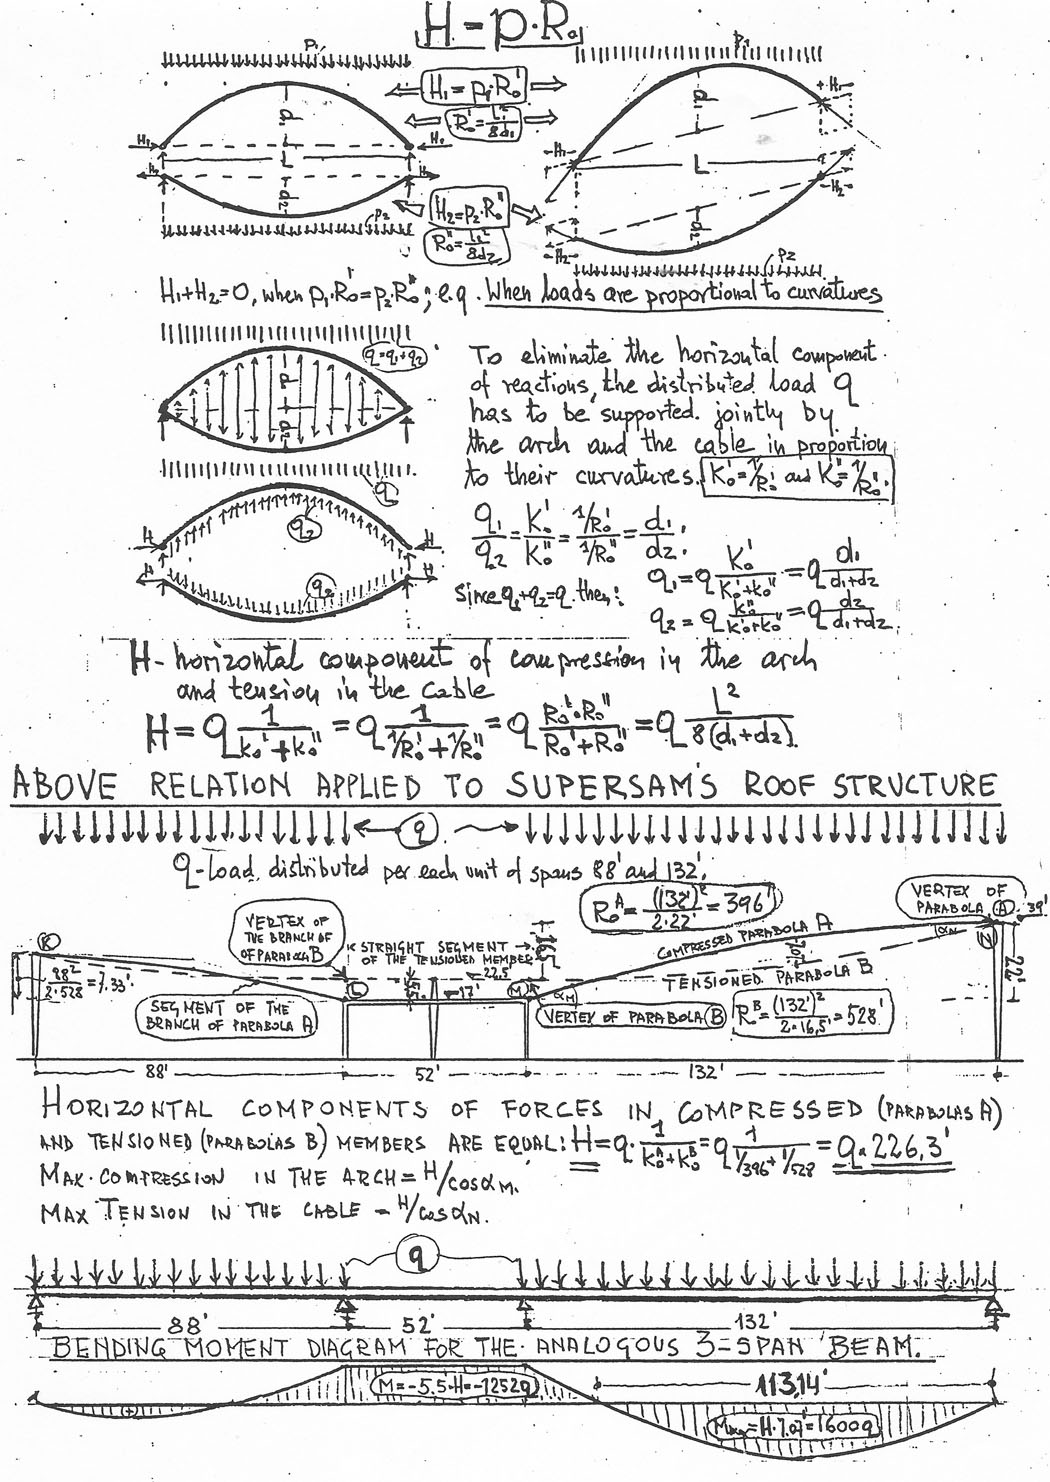 H = p·R₀
p₁
p₁
H₁ = p₁·R₀'
R₀' = L²/8d₁
d₁
d₁
H₁
H₁
H₁
H₁
L
L
H₂
H₂
H₂
H₂
d₂
d₂
H₂ = p₂·R₀"
R₀" = L²/8d₂
p₂
p₂
H₁+H₂=0, when p₁·R₀'=p₂·R₀"; e.g. When loads are proportional to curvatures
q=q₁+q₂
d₁
d₂
To eliminate the horizontal component
of reactions, the distributed load q
has to be supported jointly by
the arch and the cable in proportion
to their curvatures. K₀'=1/R₀' and K₀"=1/R₀".
q
q₂
H
H
H
H
q₂
q₁/q₂ = K₀'/K₀" = (1/R₀')/(1/R₀") = d₁/d₂.
since q₁+q₂=q then:
q₁ = q K₀'/(K₀'+K₀") = q d₁/(d₁+d₂)
q₂ = q K₀"/(K₀'+K₀") = q d₂/(d₁+d₂).
H - horizontal component of compression in the arch
and tension in the cable
H = q 1/(K₀'+K₀") = q 1/(1/R₀'+1/R₀") = q R₀'·R₀"/(R₀'+R₀") = q L²/8(d₁+d₂).
ABOVE RELATION APPLIED TO SUPERSAM'S ROOF STRUCTURE
q
q-Load, distributed per each unit of spans 88' and 132'.
R₀ᴬ = (132')²/2·22' = 396'
VERTEX OF
PARABOLA A
39'
VERTEX OF
THE BRANCH OF
OF PARABOLA B
STRAIGHT SEGMENT
OF THE TENSIONED MEMBER
16,5'
COMPRESSED PARABOLA A
αN
N
K
88²/2·528 = 7.33'
22,5'
7,07'
TENSIONED PARABOLA B
22'
5,5'
17'
L
M
αM
SEGMENT OF THE
BRANCH OF PARABOLA A
VERTEX OF PARABOLA B
R₀ᴮ = (132')²/2·16,5' = 528'
88'
52'
132'
HORIZONTAL COMPONENTS OF FORCES IN COMPRESSED (PARABOLAS A)
AND TENSIONED (PARABOLAS B) MEMBERS ARE EQUAL: H = q· 1/(K₀ᴬ+K₀ᴮ) = q 1/(1/396+1/528) = q·226,3'
MAX. COMPRESSION IN THE ARCH = H/cosαM.
MAX TENSION IN THE CABLE = H/cosαN.
q
88'
52'
132'
BENDING MOMENT DIAGRAM FOR THE ANALOGOUS 3-SPAN BEAM.
M=-5.5·H=-1252q
113,14'
(+)
Mmax=H·7.07'=1600q